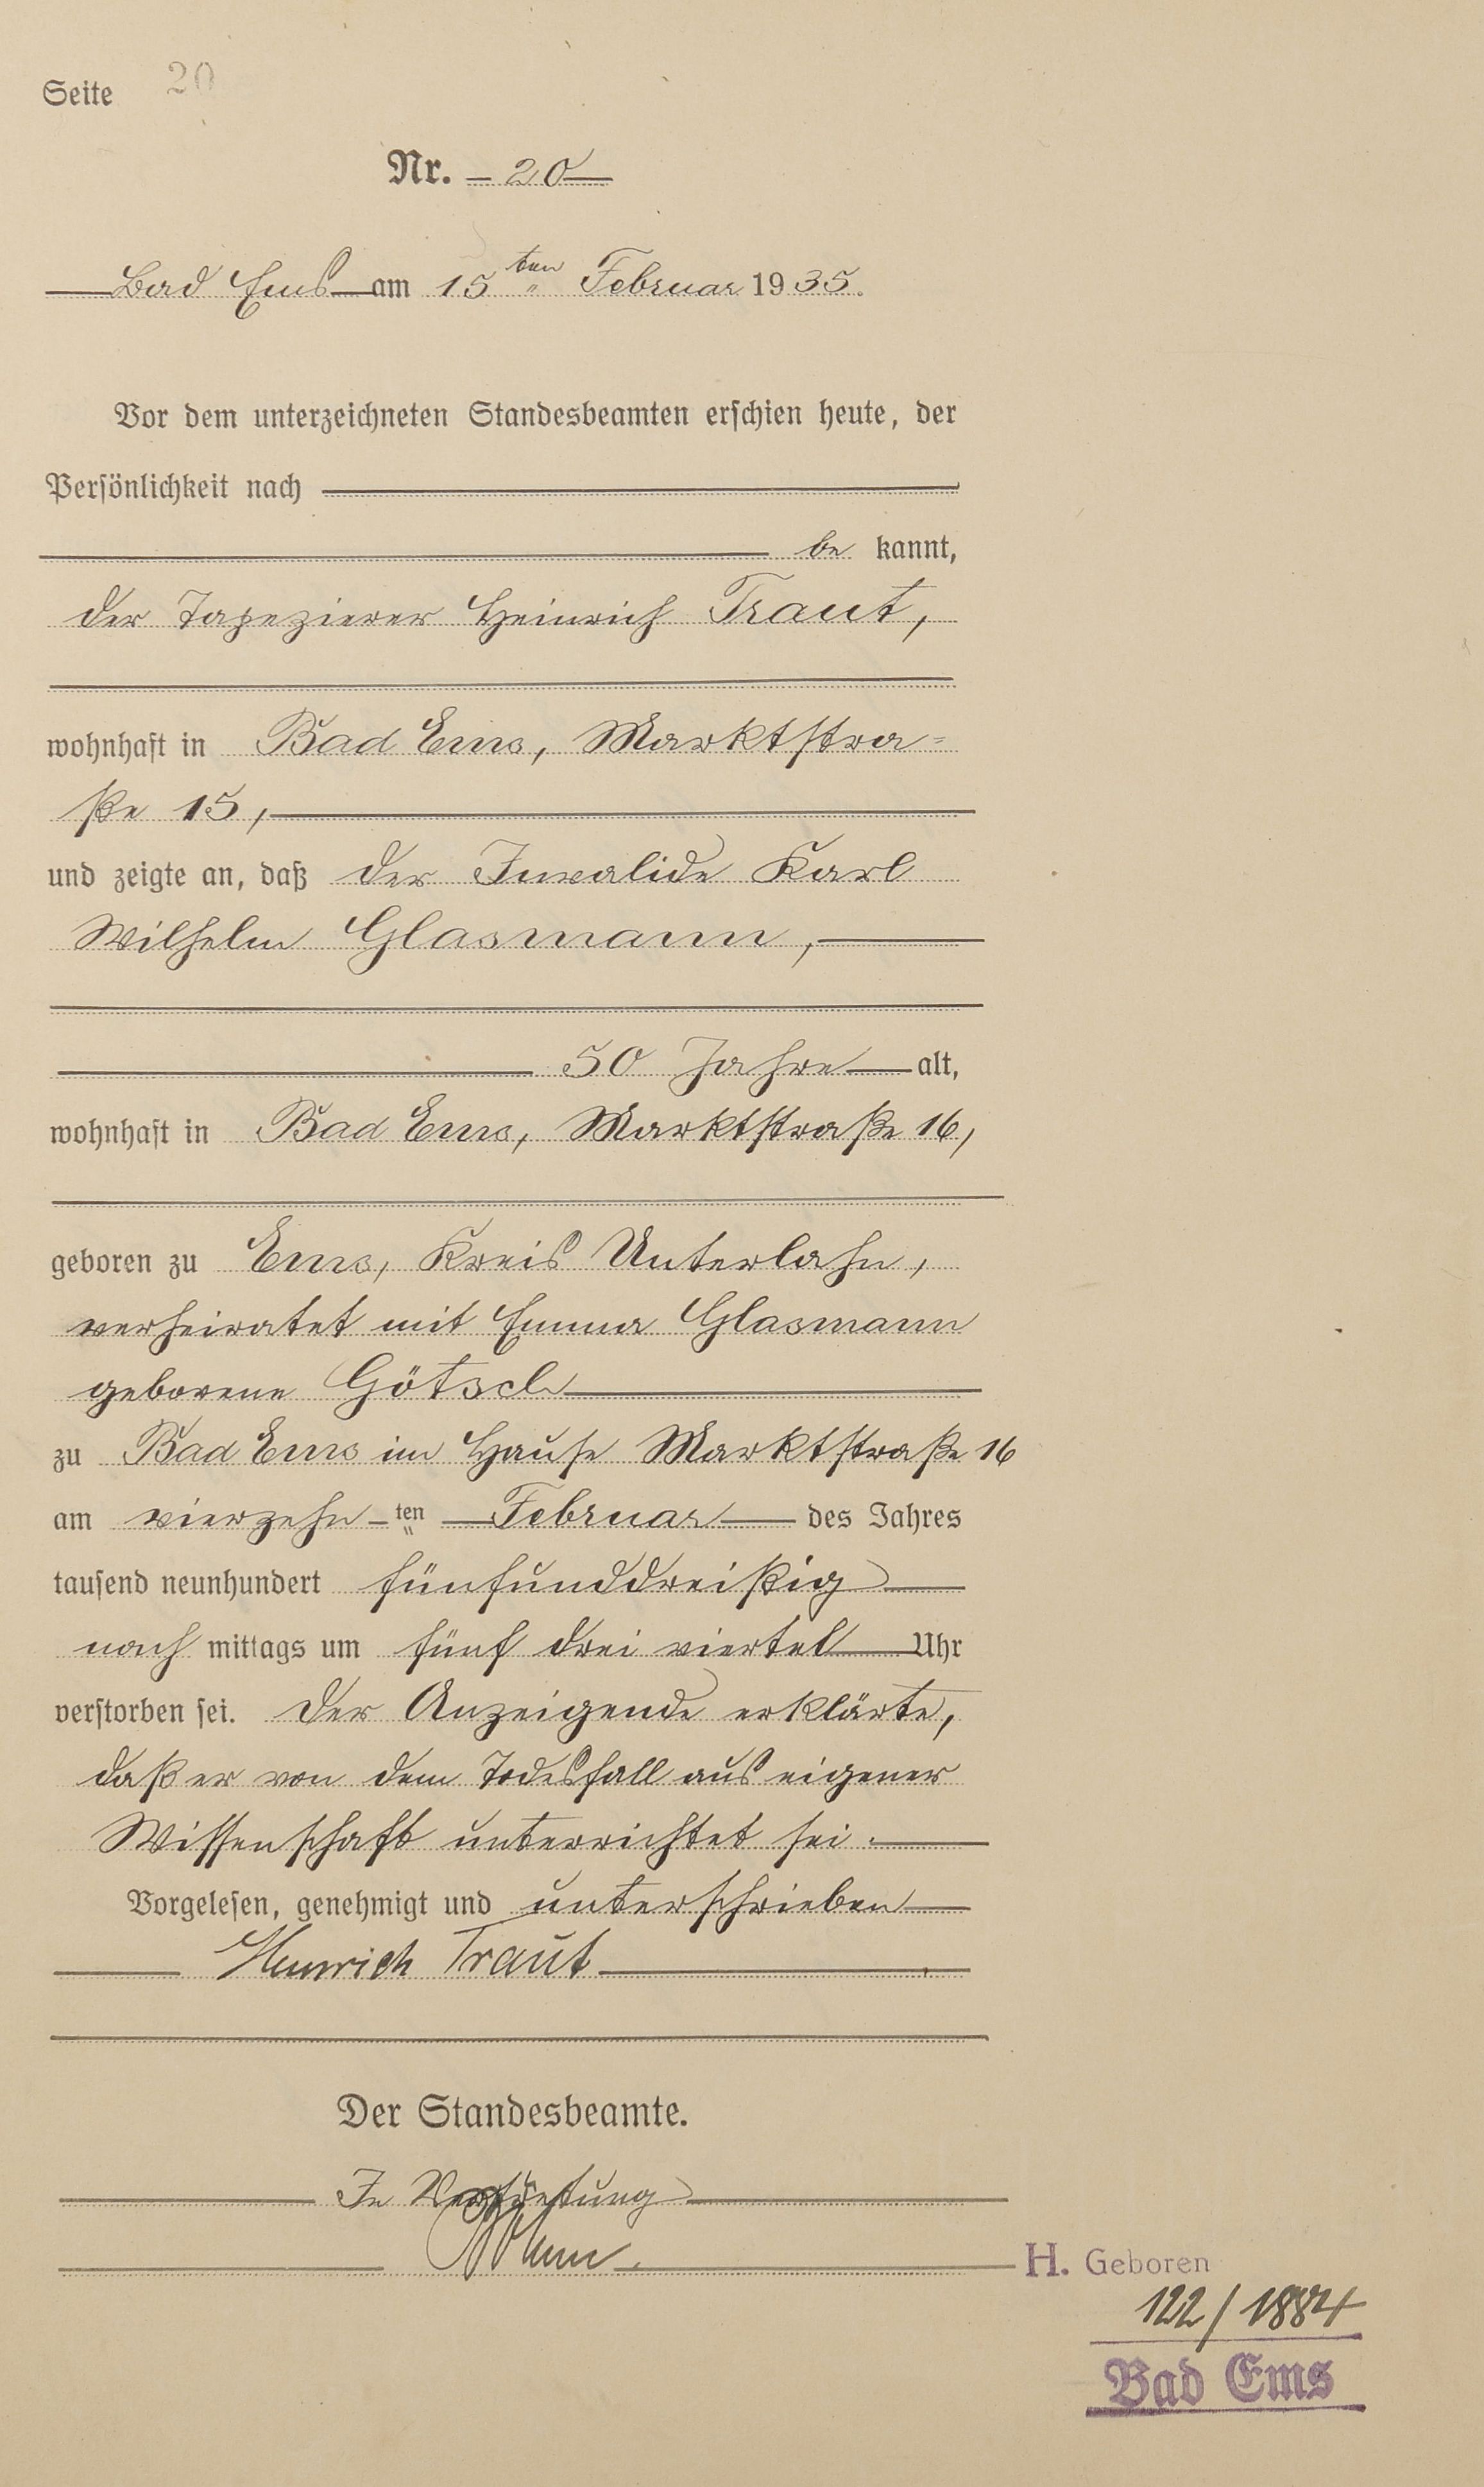 Seite 20
Nr. 20
Bad Ems am 15ten Februar 1935.
Vor dem unterzeichneten Standesbeamten erschien heute, der
Persönlichkeit nach
be kannt,
der Tapezierer Heinrich Traut,
wohnhaft in Bad Ems, Marktstra=
ße 15,
und zeigte an, daß der Invalide Karl
Wilhelm Glasmann,
50 Jahre alt,
wohnhaft in Bad Ems, Marktstraße 16,
geboren zu Ems, Kreis Unterlahn,
verheiratet mit Emma Glasmann
geborene Götsch
zu Bad Ems im Hause Marktstraße 16
am vierzehn ten Februar des Jahres
tausend neunhundert fünfunddreißig
nach mittags um fünf drei viertel Uhr
verstorben sei. Der Anzeigende erklärte,
daß er von dem Todesfall aus eigener
Wissenschaft unterrichtet sei.
Vorgelesen, genehmigt und unterschrieben
Heinrich Traut
Der Standesbeamte.
In Vertretung
H. Geboren
122/1884
Bad Ems